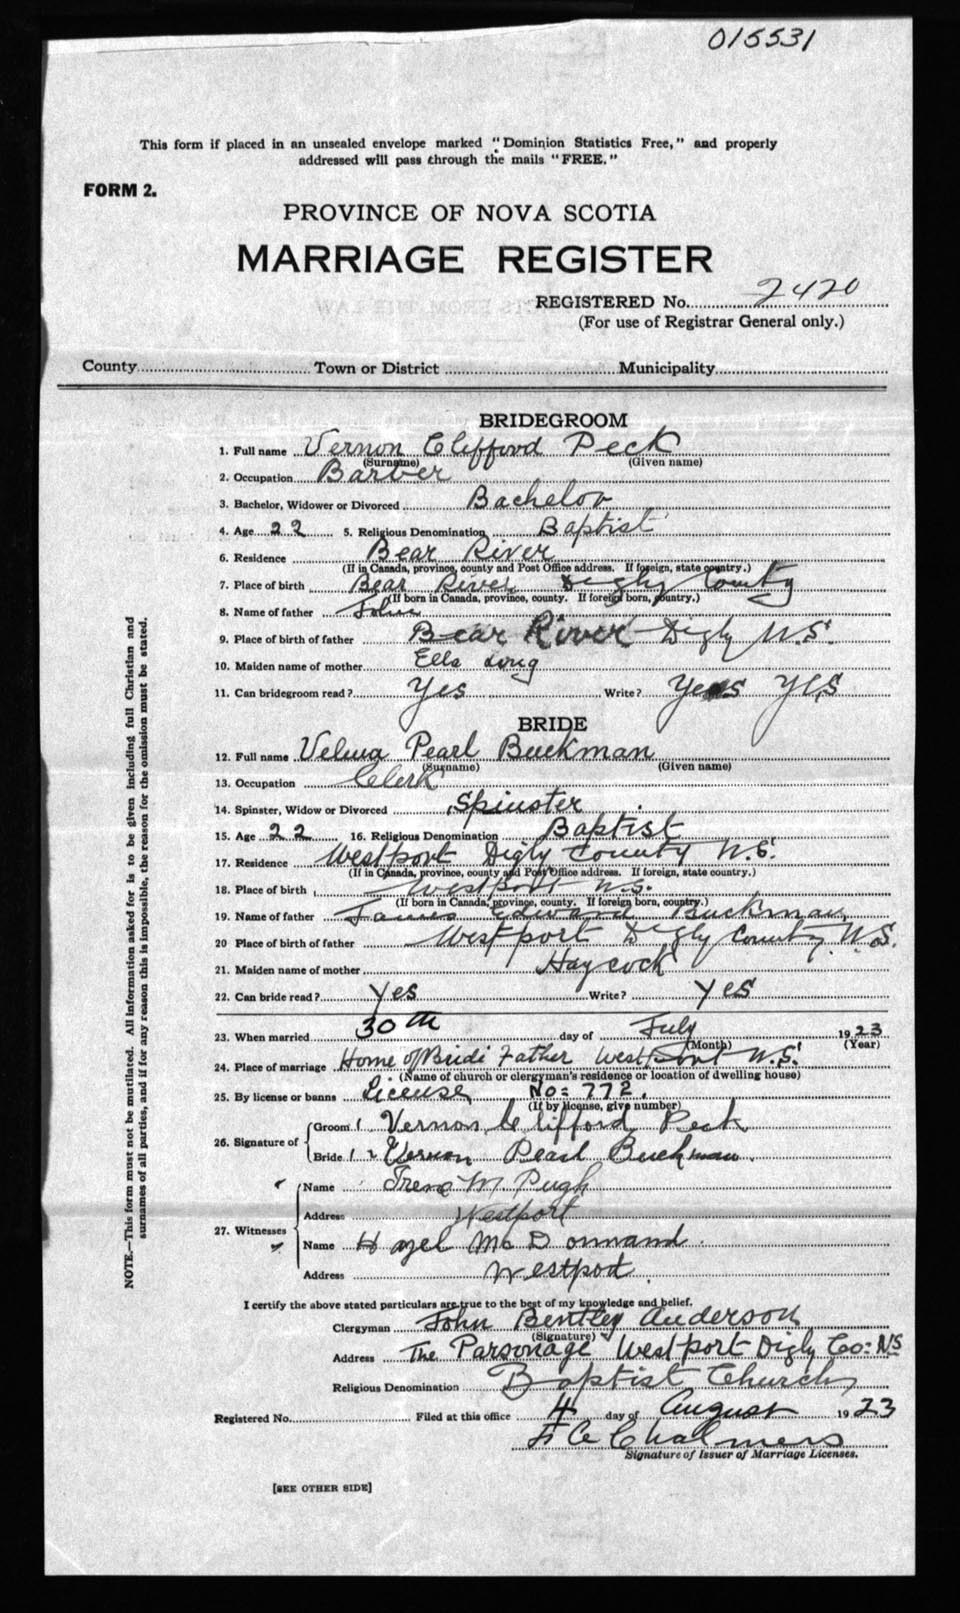 015531
This form if placed in an unsealed envelope marked "Dominion Statistics Free," and properly
addressed will pass through the mails "FREE."
FORM 2.
PROVINCE OF NOVA SCOTIA
MARRIAGE REGISTER
REGISTERED No. 2420
(For use of Registrar General only.)
County Town or District Municipality
BRIDEGROOM
1. Full name Vernon Clifford Peck
(Surname) (Given name)
2. Occupation Barber
3. Bachelor, Widower or Divorced Bachelor
4. Age 22 5. Religious Denomination Baptist
6. Residence Bear River
(If in Canada, province, county and Post Office address. If foreign, state country.)
7. Place of birth Bear River Digby County
(If born in Canada, province, county. If foreign born, country.)
8. Name of father John
9. Place of birth of father Bear River Digby N.S.
10. Maiden name of mother Ella Long
11. Can bridegroom read? Yes Write? Yes Yes
BRIDE
12. Full name Velma Pearl Buckman
(Surname) (Given name)
13. Occupation Clerk
14. Spinster, Widow or Divorced Spinster
15. Age 22 16. Religious Denomination Baptist
17. Residence Westport Digby County N.S.
(If in Canada, province, county and Post Office address. If foreign, state country.)
18. Place of birth Westport N.S.
(If born in Canada, province, county. If foreign born, country.)
19. Name of father James Edward Buckman
20 Place of birth of father Westport Digby County N.S.
21. Maiden name of mother Haycock
22. Can bride read? Yes Write? Yes
23. When married 30th day of July 1923
(Month) (Year)
24. Place of marriage Home of Bride Father Westport N.S.
(Name of church or clergyman's residence or location of dwelling house)
25. By license or banns License No: 772.
(If by license, give number)
26. Signature of
Groom 1 Vernon Clifford Peck
Bride 1 2 Vernon Pearl Buckman.
27. Witnesses
Name M Pugh
Address Westport
Name Hazel Mc Dormand.
Address Westport.
I certify the above stated particulars are true to the best of my knowledge and belief.
Clergyman John Bentley Anderson
(Signature)
Address The Parsonage Westport Digby Co: NS
Religious Denomination Baptist Church
Registered No. Filed at this office 4 day of August 1923
Chalmers
Signature of Issuer of Marriage Licenses.
[SEE OTHER SIDE]
NOTE.—This form must not be mutilated. All information asked for is to be given including full Christian and
surnames of all parties, and if for any reason this is impossible, the reason for the omission must be stated.